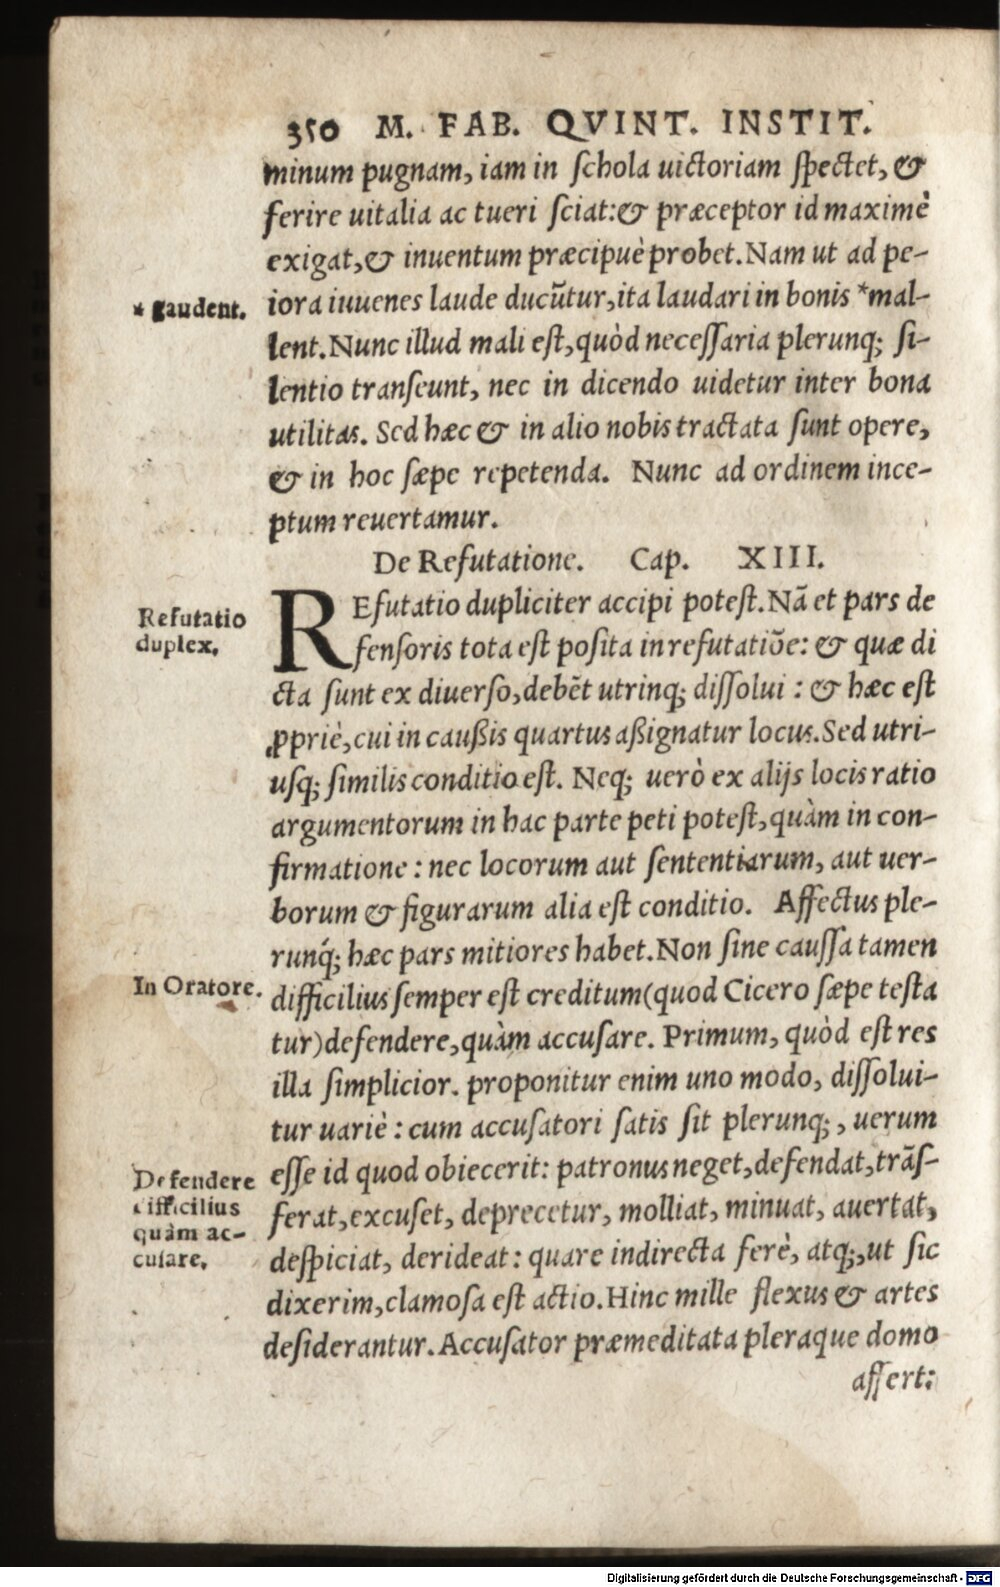 350 M. FAB. QVINT. INSTIT.
minum pugnam, iam in schola uictoriam spectet, &
ferire uitalia ac tueri sciat:& præceptor id maximè
exigat,& inuentum præcipuè probet.Nam ut ad pe-
* gaudent.
iora iuuenes laude ducūtur,ita laudari in bonis *mal-
lent.Nunc illud mali est,quòd necessaria plerunq; si-
lentio transeunt, nec in dicendo uidetur inter bona
utilitas. Sed hæc & in alio nobis tractata sunt opere,
& in hoc sæpe repetenda. Nunc ad ordinem ince-
ptum reuertamur.
De Refutatione. Cap. XIII.
Refutatio
duplex.
REfutatio dupliciter accipi potest.Nā et pars de
fensoris tota est posita in refutatiōe: & quæ di
cta sunt ex diuerso,debēt utrinq; dissolui : & hæc est
ꝓpriè,cui in caußis quartus aßignatur locus.Sed utri-
usq; similis conditio est. Neq; uerò ex alijs locis ratio
argumentorum in hac parte peti potest,quàm in con-
firmatione : nec locorum aut sententiarum, aut uer-
borum & figurarum alia est conditio. Affectus ple-
runq́; hæc pars mitiores habet.Non sine caussa tamen
In Oratore.
difficilius semper est creditum(quod Cicero sæpe testa
tur)defendere,quàm accusare. Primum, quòd est res
illa simplicior. proponitur enim uno modo, dissolui-
tur uariè : cum accusatori satis sit plerunq;, uerum
Defendere
difficilius
quàm ac-
cusare.
esse id quod obiecerit: patronus neget,defendat,trās-
ferat,excuset, deprecetur, molliat, minuat, auertat,
despiciat, derideat : quare indirecta ferè, atq;,ut sic
dixerim,clamosa est actio.Hinc mille flexus & artes
desiderantur.Accusator præmeditata pleraque domo
affert:
Digitalisierung gefördert durch die Deutsche Forschungsgemeinschaft - DFG